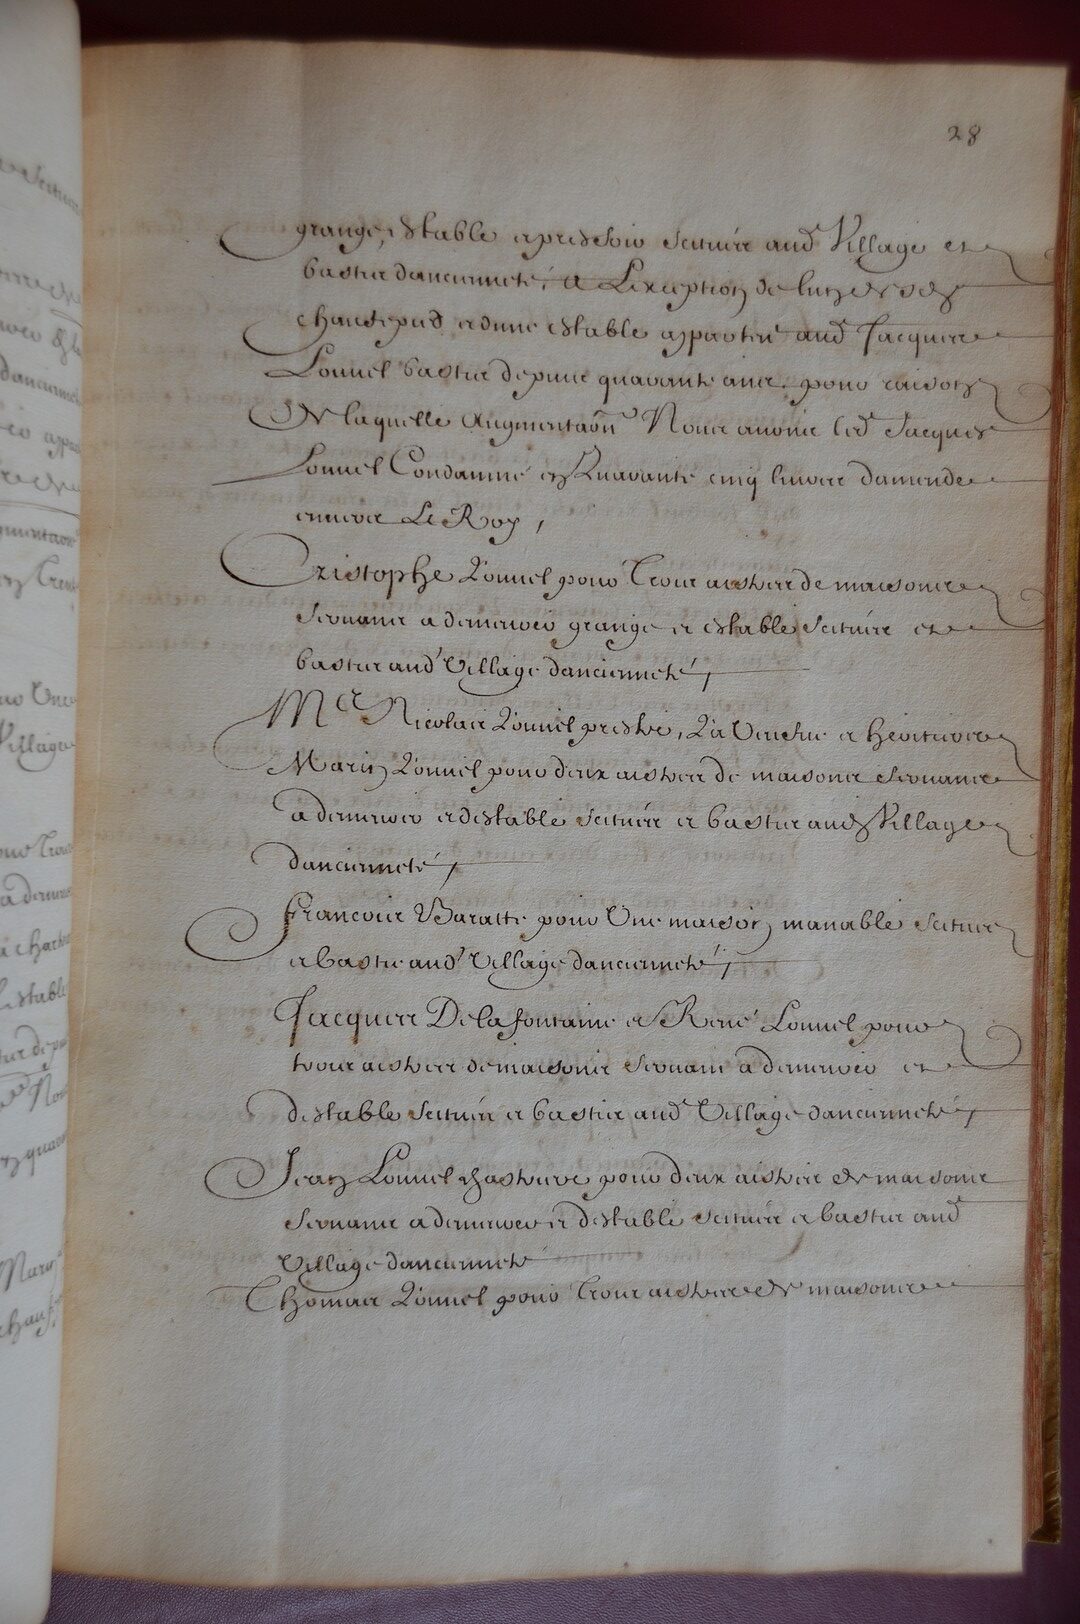 28
grange, estable et pressoir scituéz aud Village et
bastie dancienneté, a Lexception de lun des d
chaudepied et dune estable appartent aud Jacques
Lonnel bastie depuis quarante ans, pour raison
De laquelle augmentaon Nous avons led Jacques
Lonnel Condamné en Quarante cinq livres damende
envers Le Roy,
Cristophe Lonnel pour trois aistres de maisons
servans a demeurer grange et estable scituéz et
bastis aud Village dancienneté,
Mes Nicolas Lonnel prestre, La Veufve et heritiers
Marin Lonnel pour deux aistres de maisons servans
a demeurer et destable scituéz et bastis aud Village
dancienneté,
Francois Baratte pour Une maison manable scituée
et bastie aud Village dancienneté,
Jacques Delafontaine et René Lonnel pour
trois aistres de maisons servans a demeurer et
destable scituéz et bastis aud Village dancienneté,
Jean Lonnel pour deux aistres de maisons
servans a demeurer et destable scituéz et bastis aud
Village dancienneté
Thomas Lonnel pour trois aistres de maisons